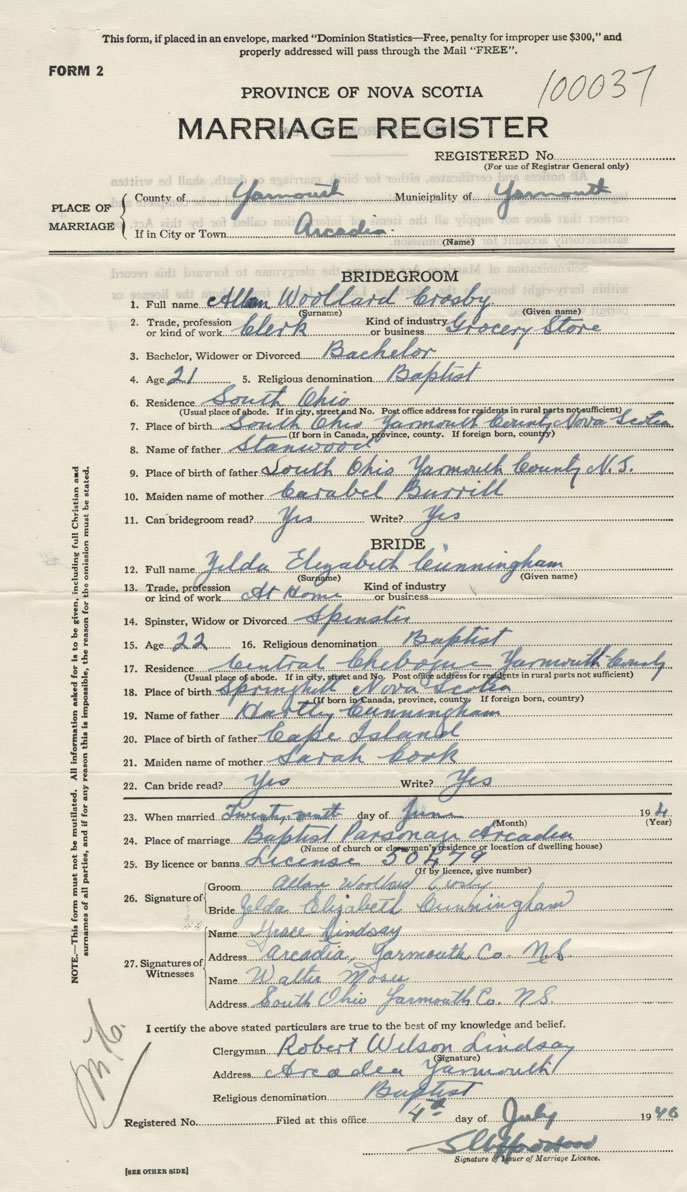 This form, if placed in an envelope, marked "Dominion Statistics—Free, penalty for improper use $300," and
properly addressed will pass through the Mail "FREE".
FORM 2
100037
PROVINCE OF NOVA SCOTIA
MARRIAGE REGISTER
REGISTERED No.
(For use of Registrar General only)
PLACE OF MARRIAGE
County of Yarmouth Municipality of Yarmouth
If in City or Town Arcadia
(Name)
BRIDEGROOM
1. Full name Allan Woollard Crosby
(Surname) (Given name)
2. Trade, profession or kind of work Clerk Kind of industry or business Grocery Store
3. Bachelor, Widower or Divorced Bachelor
4. Age 21 5. Religious denomination Baptist
6. Residence South Ohio
(Usual place of abode. If in city, street and No. Post office address for residents in rural parts not sufficient)
7. Place of birth South Ohio Yarmouth County Nova Scotia
(If born in Canada, province, county. If foreign born, country)
8. Name of father Stanwood
9. Place of birth of father South Ohio Yarmouth County N.S.
10. Maiden name of mother Carabel Burrill
11. Can bridegroom read? Yes Write? Yes
BRIDE
12. Full name Zelda Elizabeth Cunningham
(Surname) (Given name)
13. Trade, profession or kind of work At Home Kind of industry or business
14. Spinster, Widow or Divorced Spinster
15. Age 22 16. Religious denomination Baptist
17. Residence Central Chebogue Yarmouth County
(Usual place of abode. If in city, street and No. Post office address for residents in rural parts not sufficient)
18. Place of birth Springhill Nova Scotia
(If born in Canada, province, county. If foreign born, country)
19. Name of father Hartley Cunningham
20. Place of birth of father Cape Island
21. Maiden name of mother Sarah Cook
22. Can bride read? Yes Write? Yes
23. When married day of June 19
(Month) (Year)
24. Place of marriage Baptist Parsonage Arcadia
(Name of church or clergyman's residence or location of dwelling house)
25. By licence or banns License 50479
(If by licence, give number)
26. Signature of
Groom Allan Woollard Crosby
Bride Zelda Elizabeth Cunningham
27. Signatures of Witnesses
Name Grace Lindsay
Address Arcadia, Yarmouth Co. N.S.
Name Walter
Address South Ohio Yarmouth Co. N.S.
I certify the above stated particulars are true to the best of my knowledge and belief.
Clergyman Robert Wilson Lindsay
(Signature)
Address Arcadia Yarmouth
Religious denomination Baptist
Registered No. Filed at this office 4th day of July 1946
Signature of Issuer of Marriage Licence.
[SEE OTHER SIDE]
NOTE.—This form must not be mutilated. All information asked for is to be given, including full Christian and
surnames of all parties, and if for any reason this is impossible, the reason for the omission must be stated.